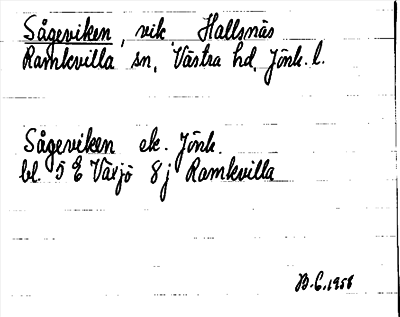 Sågeviken, vik Hallsnäs
Ramkvilla sn, Västra hd, Jönk. l.
Sågeviken ek. Jönk.
bl 5 E Växjö 8j Ramkvilla
B.C. 1958